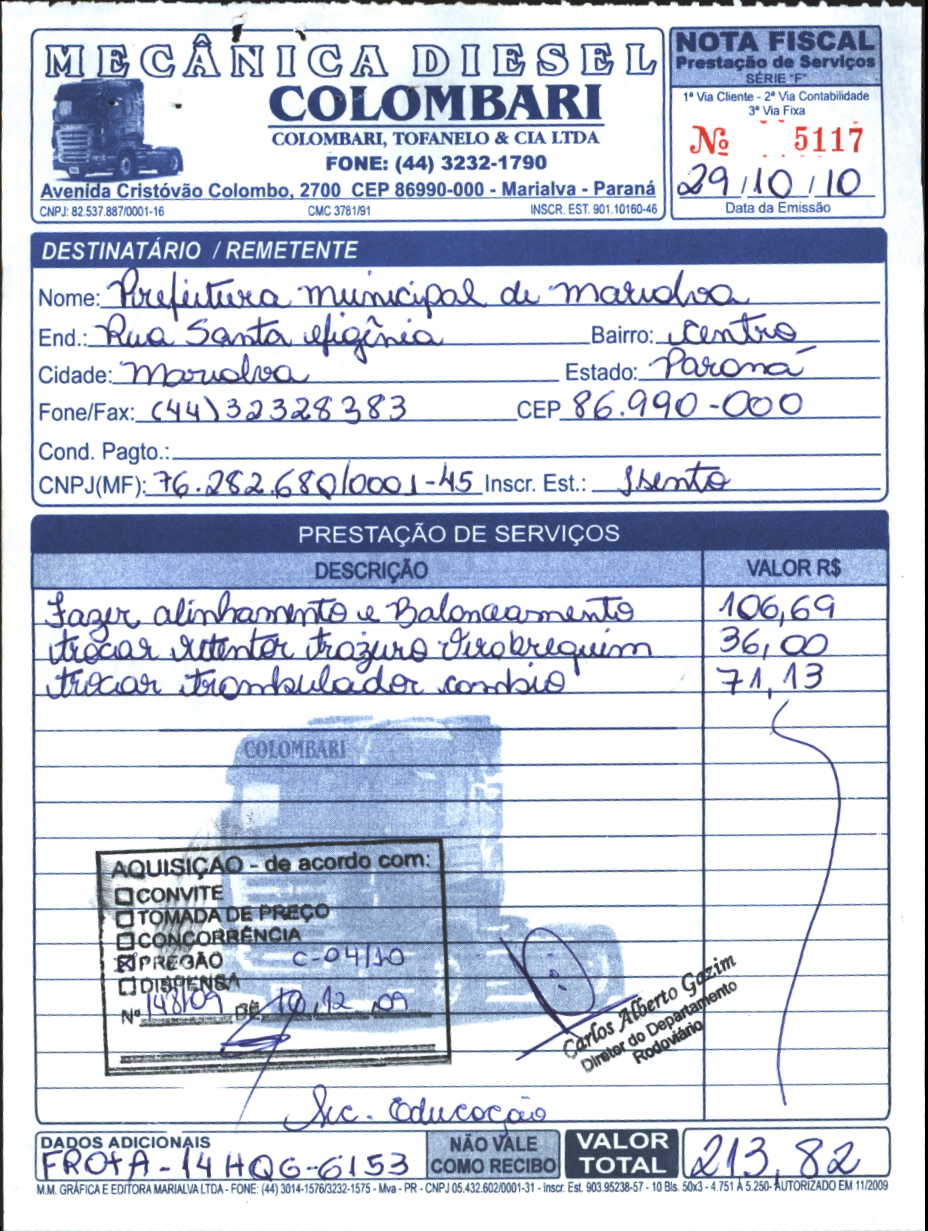 MECÂNICA DIESEL
COLOMBARI
COLOMBARI, TOFANELO & CIA LTDA
FONE: (44) 3232-1790
Avenida Cristóvão Colombo, 2700 CEP 86990-000 - Marialva - Paraná
CNPJ: 82.537.887/0001-16 CMC 3761/91 INSCR. EST. 901.10160-46
NOTA FISCAL
Prestação de Serviços
SÉRIE "F"
1ª Via Cliente - 2ª Via Contabilidade
3ª Via Fixa
Nº 5117
29/10/10
Data da Emissão
DESTINATÁRIO / REMETENTE
Nome: Prefeitura municipal de marialva
End.: Rua Santa efigênia Bairro: centro
Cidade: Marialva Estado: Paraná
Fone/Fax: (44) 32328383 CEP 86.990-000
Cond. Pagto.:
CNPJ(MF): 76.282.680/0001-45 Inscr. Est.: Isento
PRESTAÇÃO DE SERVIÇOS
DESCRIÇÃO VALOR R$
Fazer alinhamento e Balanceamento 106,69
trocar retentor trazeiro Virabrequim 36,00
trocar trambulador cambio 71,13
COLOMBARI
AQUISIÇÃO - de acordo com:
CONVITE
TOMADA DE PREÇO
CONCORRÊNCIA
PREGÃO C-04/10
DISPENSA
Nº 148/09 DE 10, 12, 09
Carlos Alberto Gazim
Diretor do Departamento
Rodoviário
Sec. Educação
DADOS ADICIONAIS
FROTA - 14 HQG-6153
NÃO VALE
COMO RECIBO
VALOR
TOTAL
213,82
M.M. GRÁFICA E EDITORA MARIALVA LTDA - FONE: (44) 3014-1576/3232-1575 - Mva - PR - CNPJ 05.432.602/0001-31 - Inscr. Est. 903.95238-57 - 10 Bls. 50x3 - 4.751 À 5.250- AUTORIZADO EM 11/2009